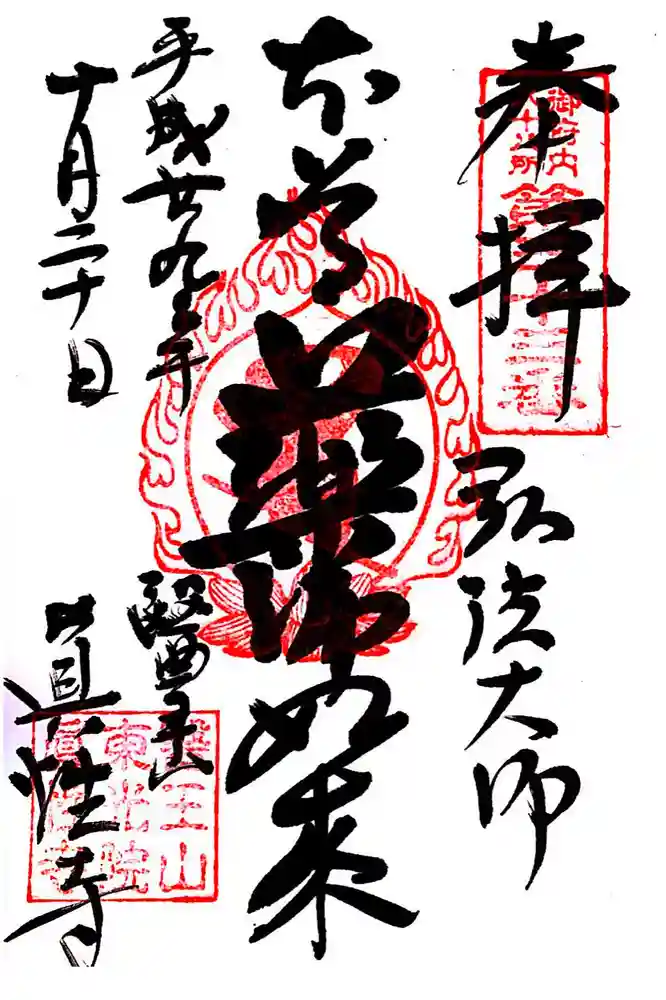 奉拝
御府内
八十八所
第三十三番
弘法大師
本尊
薬師如来
平成廿九年
十月二十日
醫王山
真性寺
醫王山
東光院
真性寺